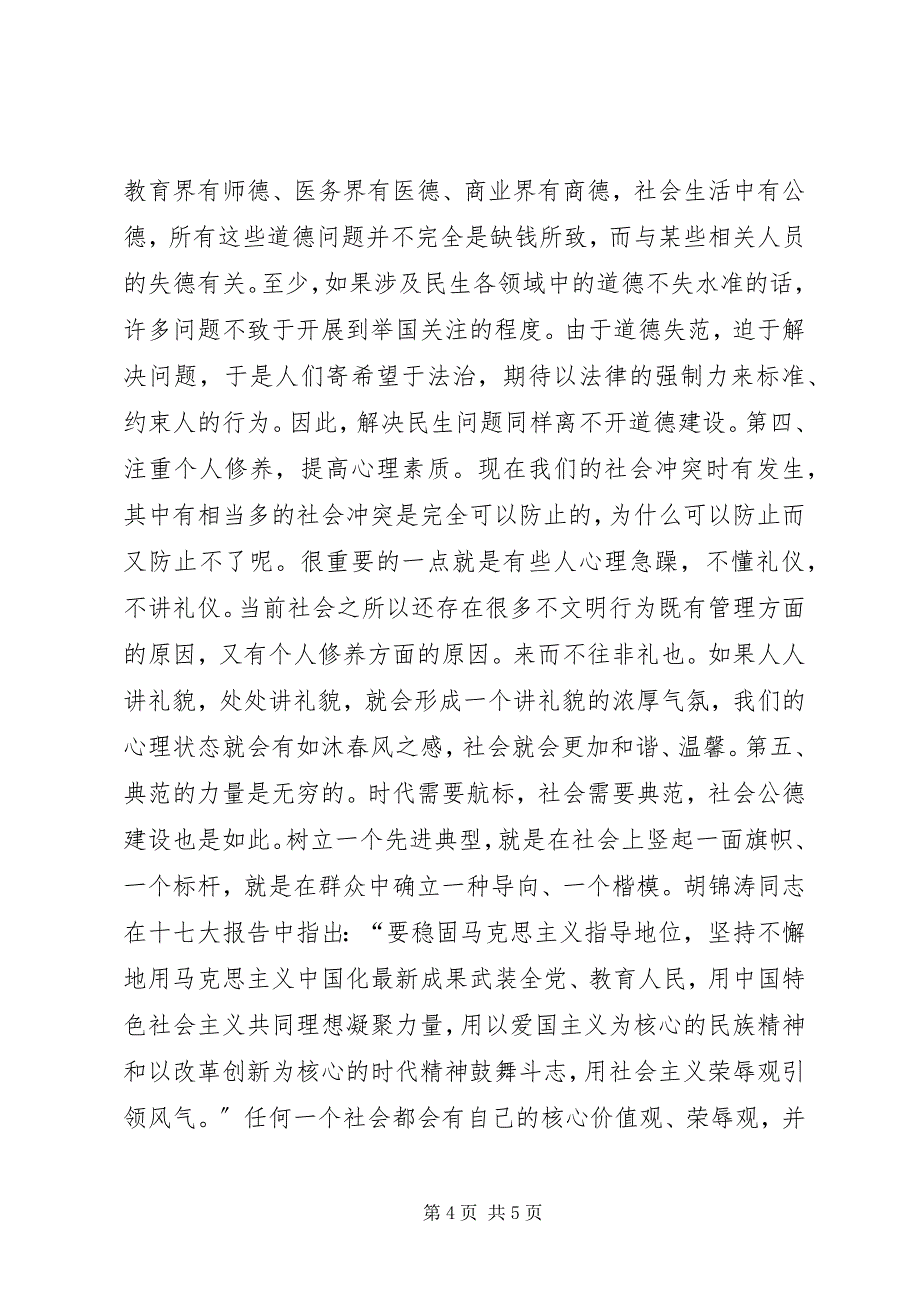 教育界有师德、医务界有医德、商业界有商德，社会生活中有公
德，所有这些道德问题并不完全是缺钱所致，而与某些相关人员
的失德有关。至少，如果涉及民生各领域中的道德不失水准的话，
许多问题不致于开展到举国关注的程度。由于道德失范，迫于解
决问题，于是人们寄希望于法治，期待以法律的强制力来标准、
约束人的行为。因此，解决民生问题同样离不开道德建设。第四、
注重个人修养，提高心理素质。现在我们的社会冲突时有发生，
其中有相当多的社会冲突是完全可以防止的，为什么可以防止而
又防止不了呢。很重要的一点就是有些人心理急躁，不懂礼仪，
不讲礼仪。当前社会之所以还存在很多不文明行为既有管理方面
的原因，又有个人修养方面的原因。来而不往非礼也。如果人人
讲礼貌，处处讲礼貌，就会形成一个讲礼貌的浓厚气氛，我们的
心理状态就会有如沐春风之感，社会就会更加和谐、温馨。第五、
典范的力量是无穷的。时代需要航标，社会需要典范，社会公德
建设也是如此。树立一个先进典型，就是在社会上竖起一面旗帜、
一个标杆，就是在群众中确立一种导向、一个楷模。胡锦涛同志
在十七大报告中指出：“要稳固马克思主义指导地位，坚持不懈
地用马克思主义中国化最新成果武装全党、教育人民，用中国特
色社会主义共同理想凝聚力量，用以爱国主义为核心的民族精神
和以改革创新为核心的时代精神鼓舞斗志，用社会主义荣辱观引
领风气。〞任何一个社会都会有自己的核心价值观、荣辱观，并
第 4 页 共 5 页